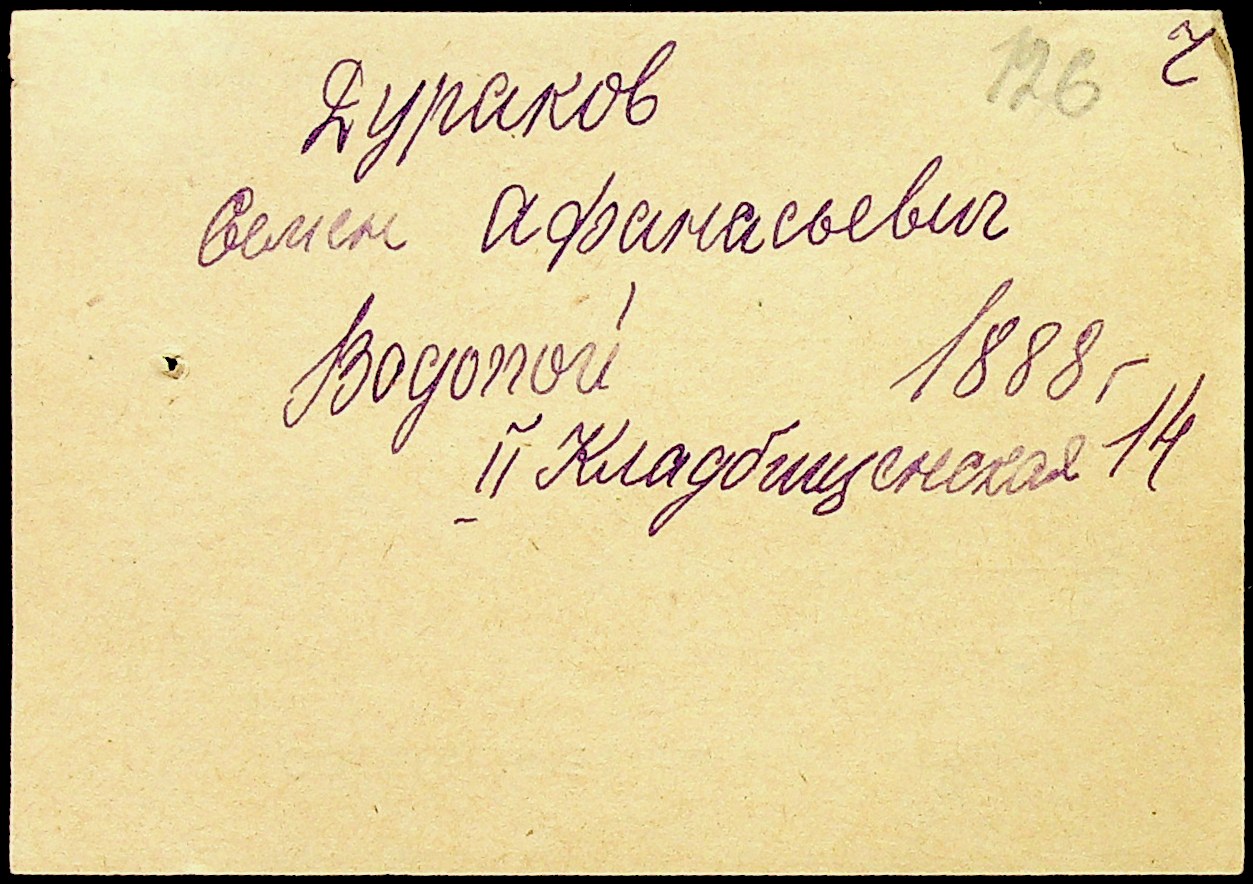 126 ч
Дураков
Семен Афанасьевич
Водопой 1888 г
II Кладбищенская 14